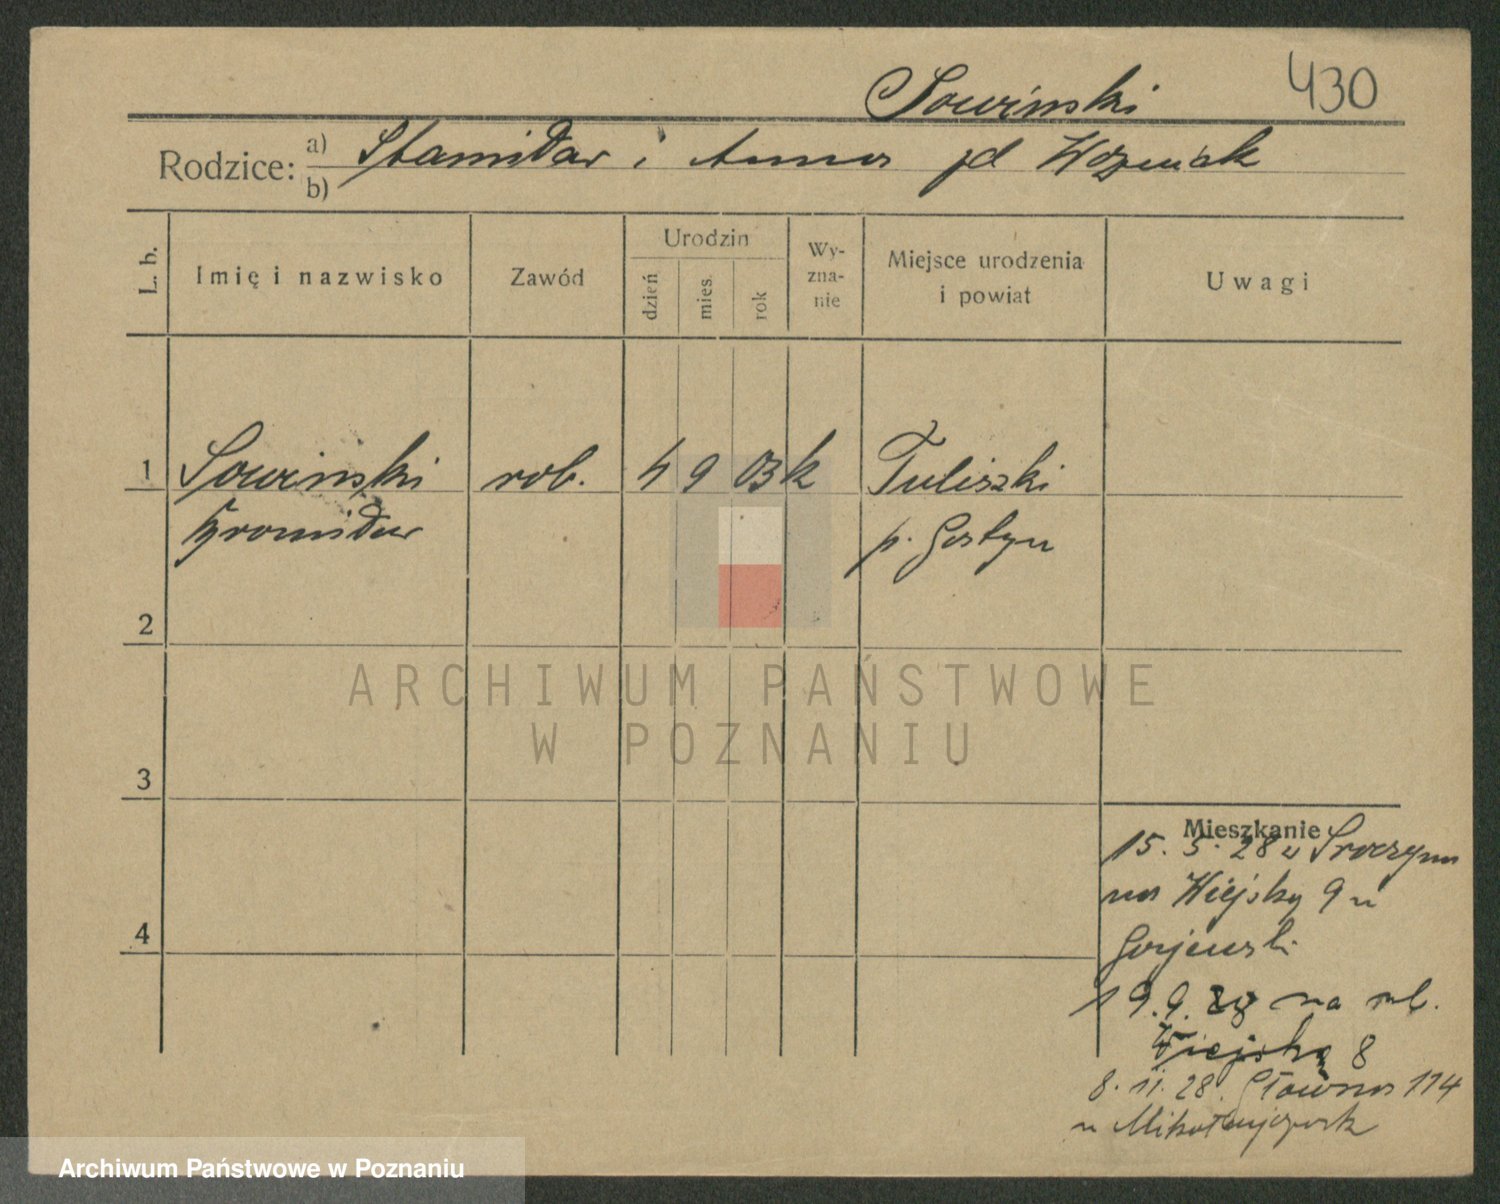 430
Sowinski
Rodzice: a) Stanisław i Anna zd Wozniak
b)
L. b. Imię i nazwisko Zawód Urodzin dzień mies. rok Wy-zna-nie Miejsce urodzenia i powiat Uwagi
1 Sowinski rob. 4 9 03 k Tuliszki
Bronisław p. Gostyn
2
ARCHIWUM PAŃSTWOWE
W POZNANIU
3
Mieszkanie
15. 5. 28 z
na Wiejską 9 u
4
19. 9. 28 na rob.
Wiejską 8
8. 11. 28. Główna 114
u Mikołajczak
Archiwum Państwowe w Poznaniu